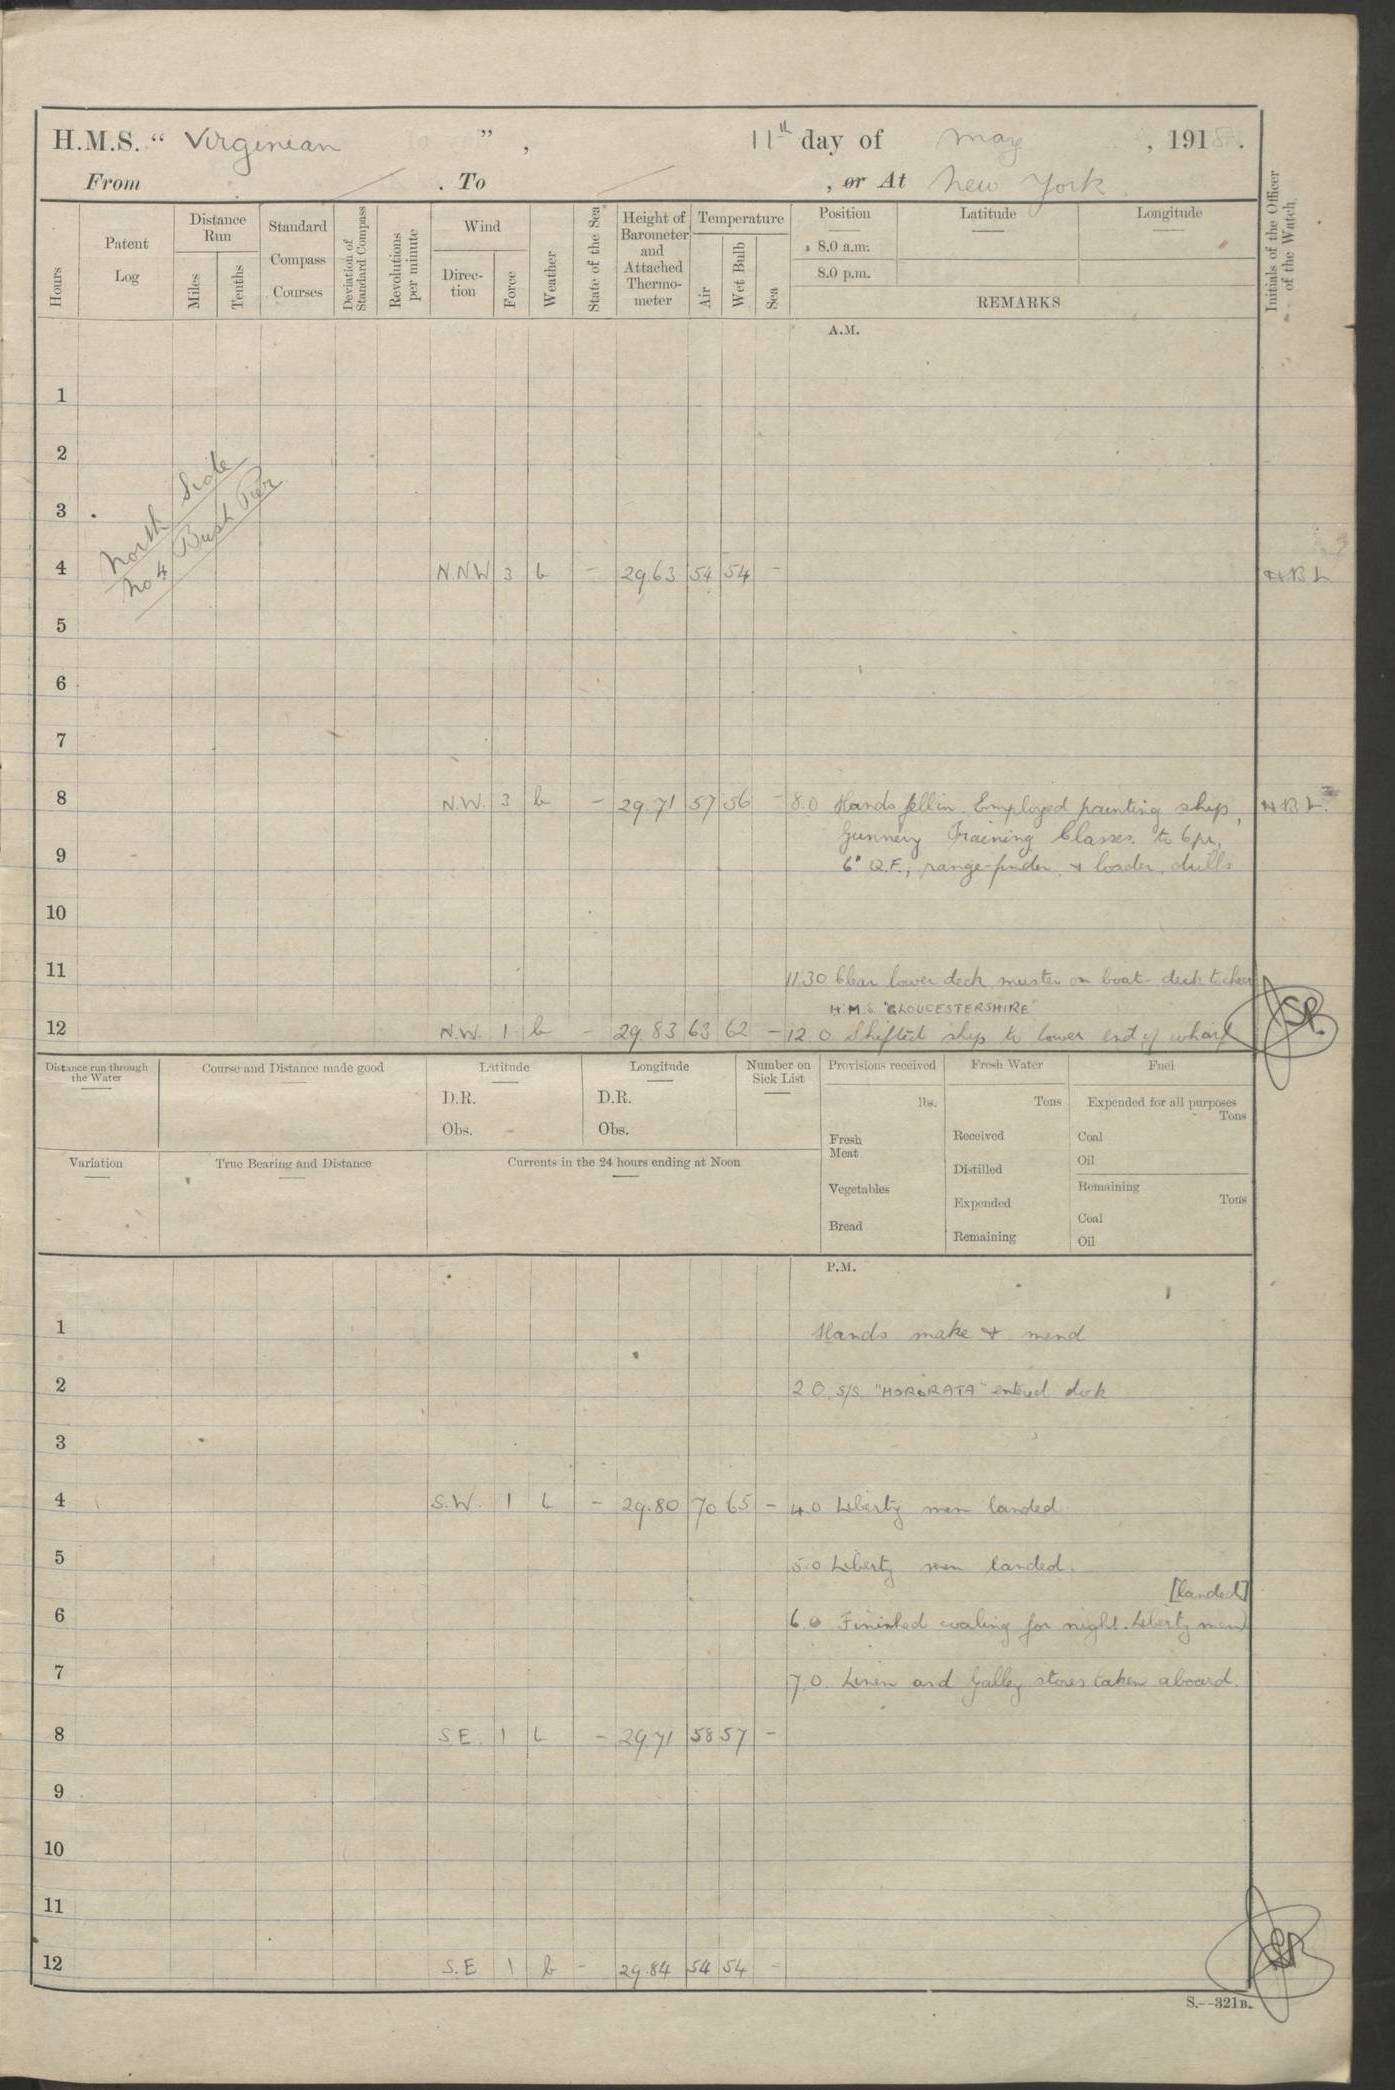 H.M.S. "Virginian", 11th day of May, 1918.
From / . To / , or At New York
Hours
Patent Log
Distance Run
Miles
Tenths
Standard Compass Courses
Deviation of Standard Compass
Revolutions per minute
Wind
Direction
Force
Weather
State of the Sea
Height of Barometer and Attached Thermometer
Temperature
Air
Wet Bulb
Sea
Position Latitude Longitude
8.0 a.m.
8.0 p.m.
REMARKS
Initials of the Officer of the Watch.
A.M.
1
2
3
North Side
No 4 Bush Pier
4 N.N.W 3 b - 29.63 54 54 - H B L
5
6
7
8 N.W. 3 b - 29.71 57 56 - 8.0 Hands fell in. Employed painting ship, H B L.
Gunnery Training Classes to 6 pr,
9
6" Q.F., range-finder & loader drills
10
11
11.30 Clear lower deck, muster on boat-deck to cheer
H.M.S. "GLOUCESTERSHIRE"
12 N.W. 1 b - 29.83 63 62 - 12.0 Shifted ship to lower end of wharf
Distance run through the Water
Course and Distance made good
Latitude
D.R.
Obs.
Longitude
D.R.
Obs.
Number on Sick List
Provisions received
lbs.
Fresh Meat
Vegetables
Bread
Fresh Water
Tons
Received
Distilled
Expended
Remaining
Fuel
Expended for all purposes
Tons
Coal
Oil
Remaining
Tons
Coal
Oil
Variation
True Bearing and Distance
Currents in the 24 hours ending at Noon
P.M.
1 Hands make & mend
2 2.0. S/S. "HORORATA" entered dock
3
4 S.W. 1 b - 29.80 70 65 - 4.0 Liberty men landed.
5 5.0 Liberty men landed.
[landed]
6 6.0 Finished coaling for night. Liberty men
7 7.0. Linen and Galley stores taken aboard.
8 S.E. 1 b - 29.71 58 57 -
9
10
11
12 S.E 1 b - 29.84 54 54 -
S.—321B.